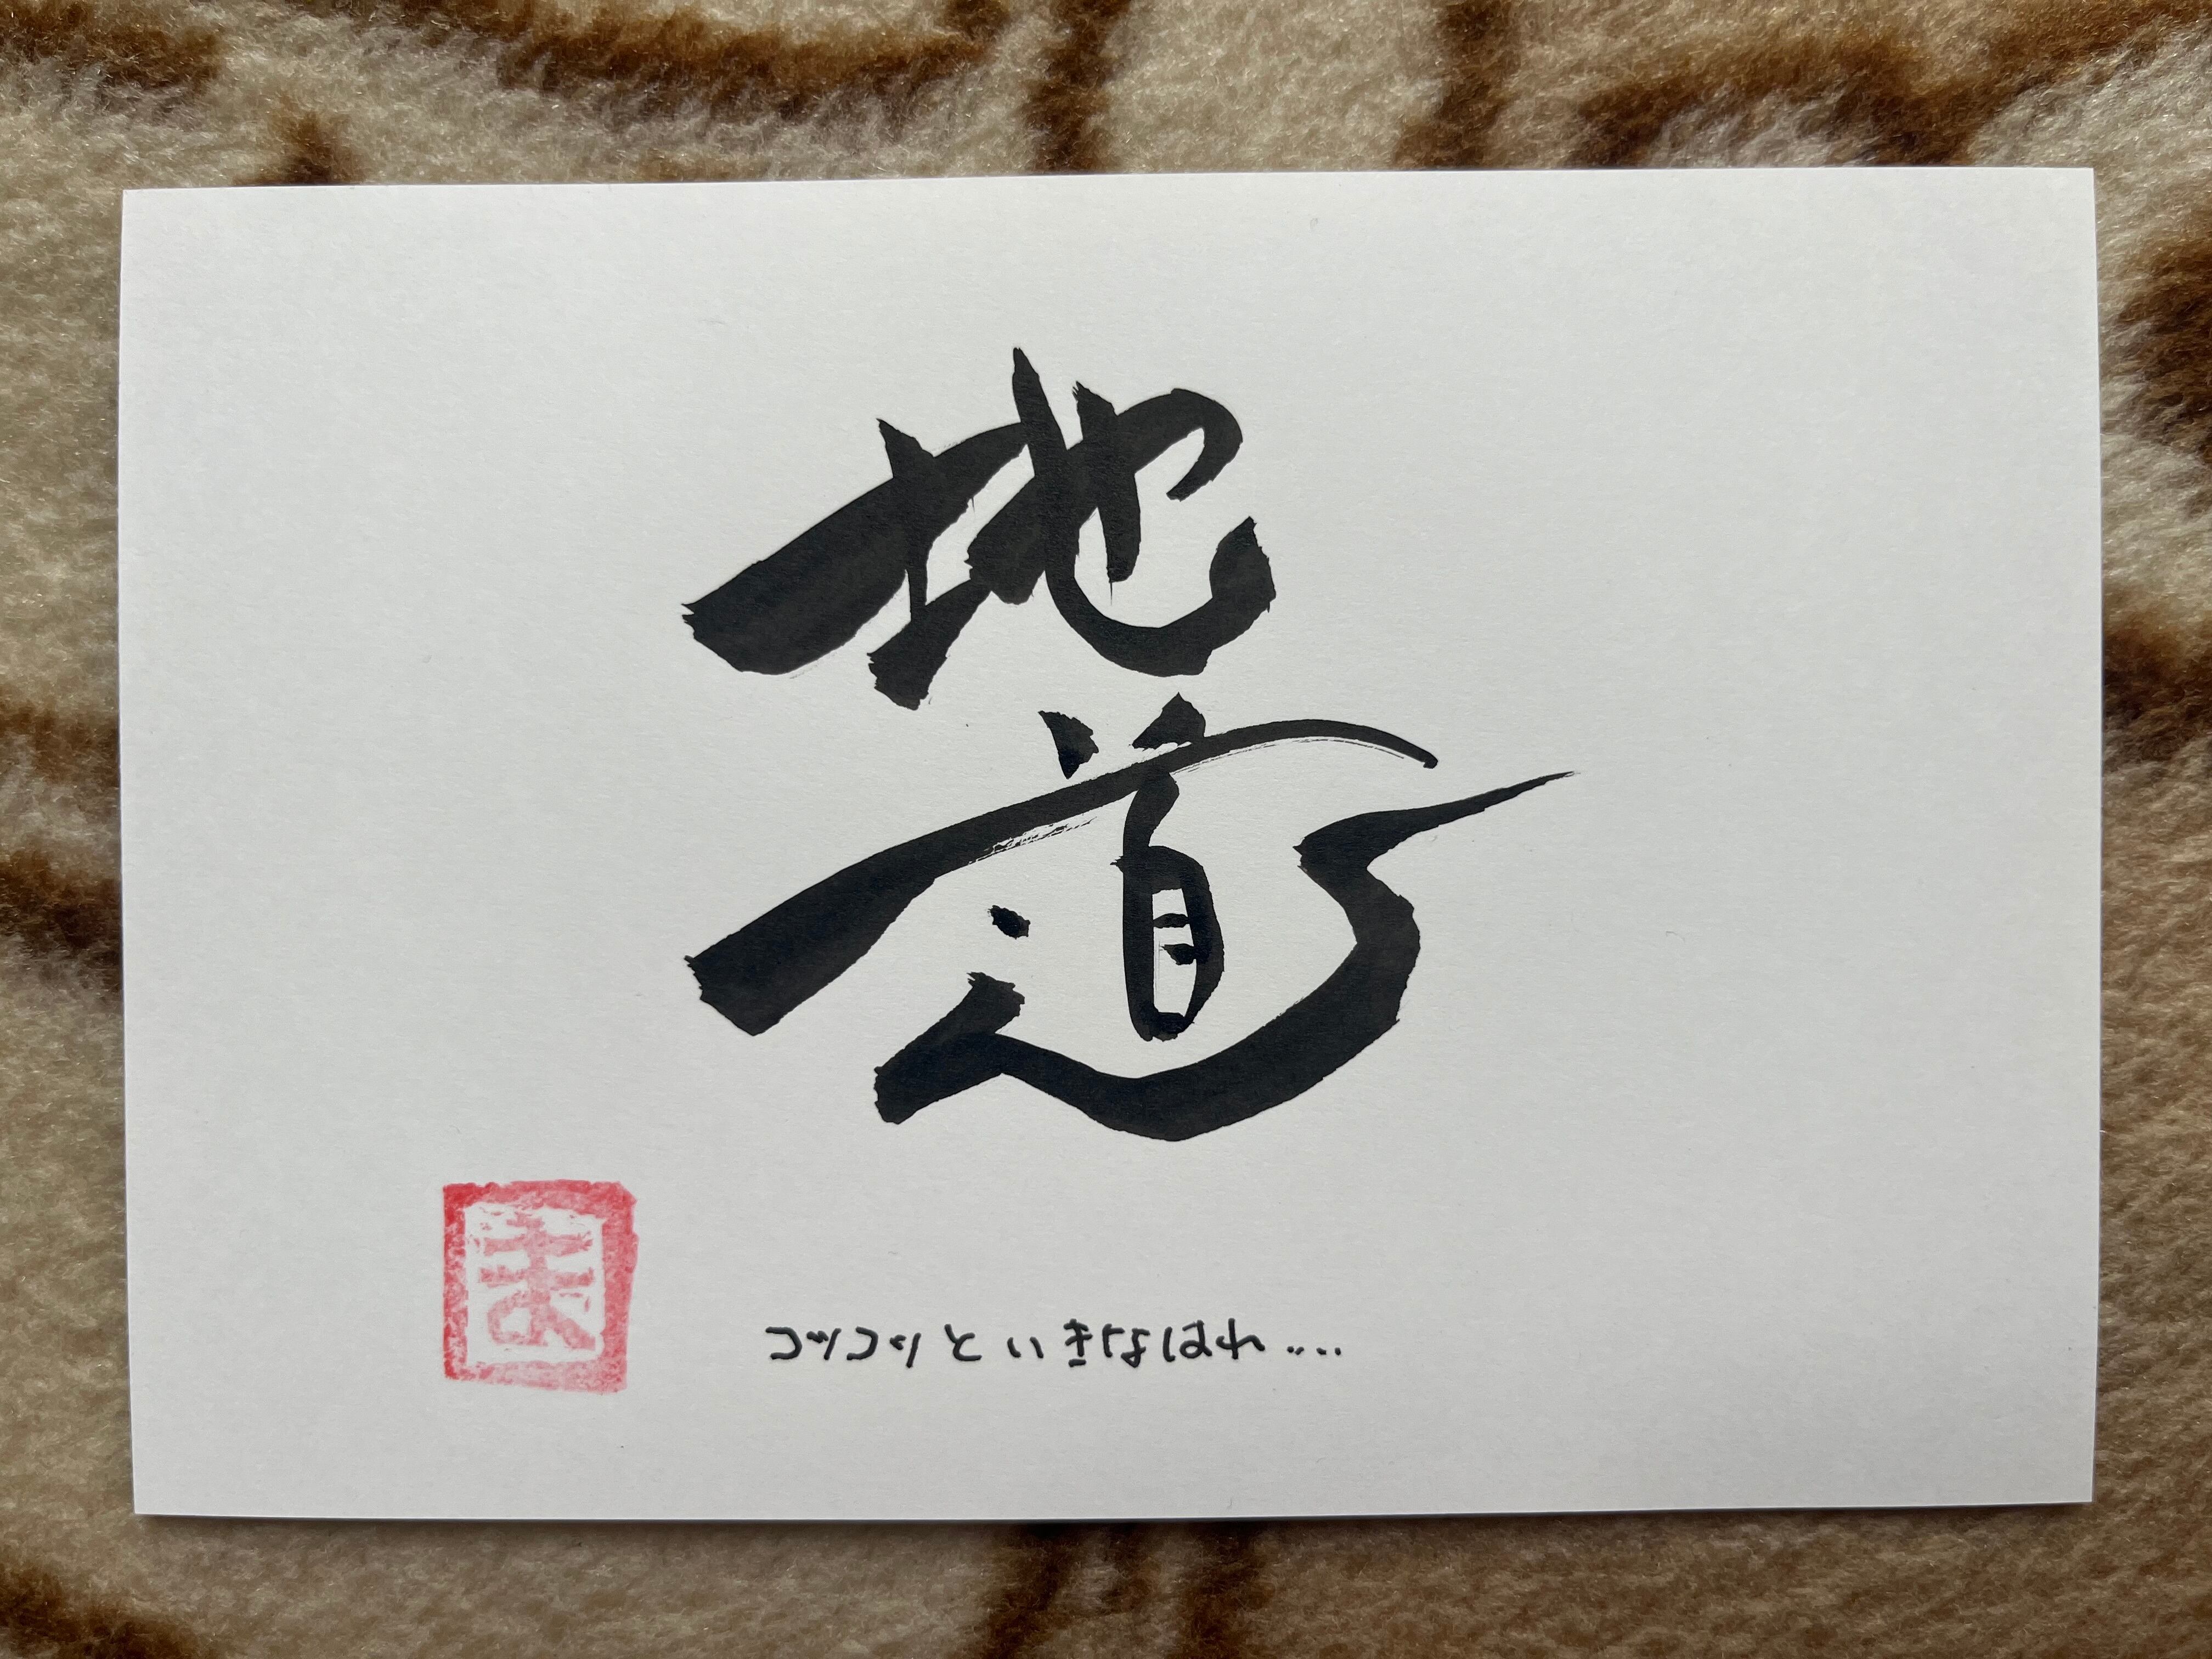 地
道
コツコツといきなはれ....
ま